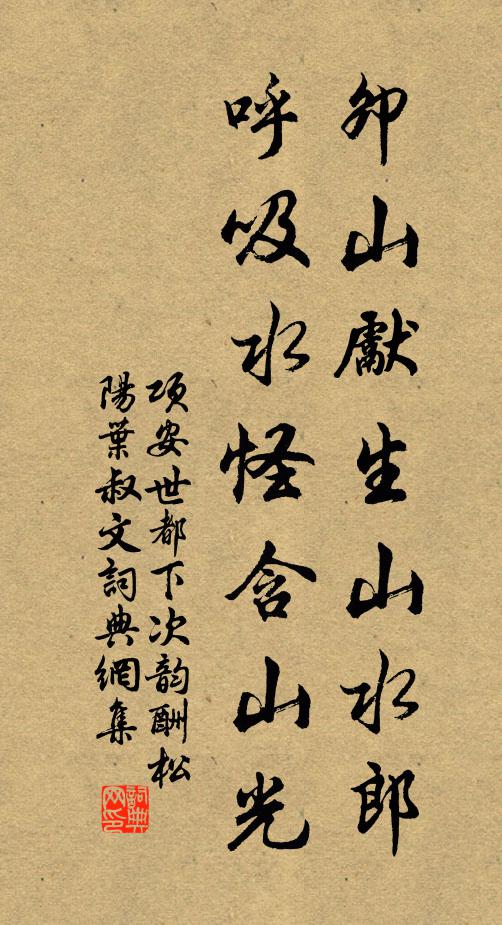 卯山獻生山水郎
呼吸水怪含山光
項安世都下次韵酬松
陽葉叔文詞典網集
詞典網印